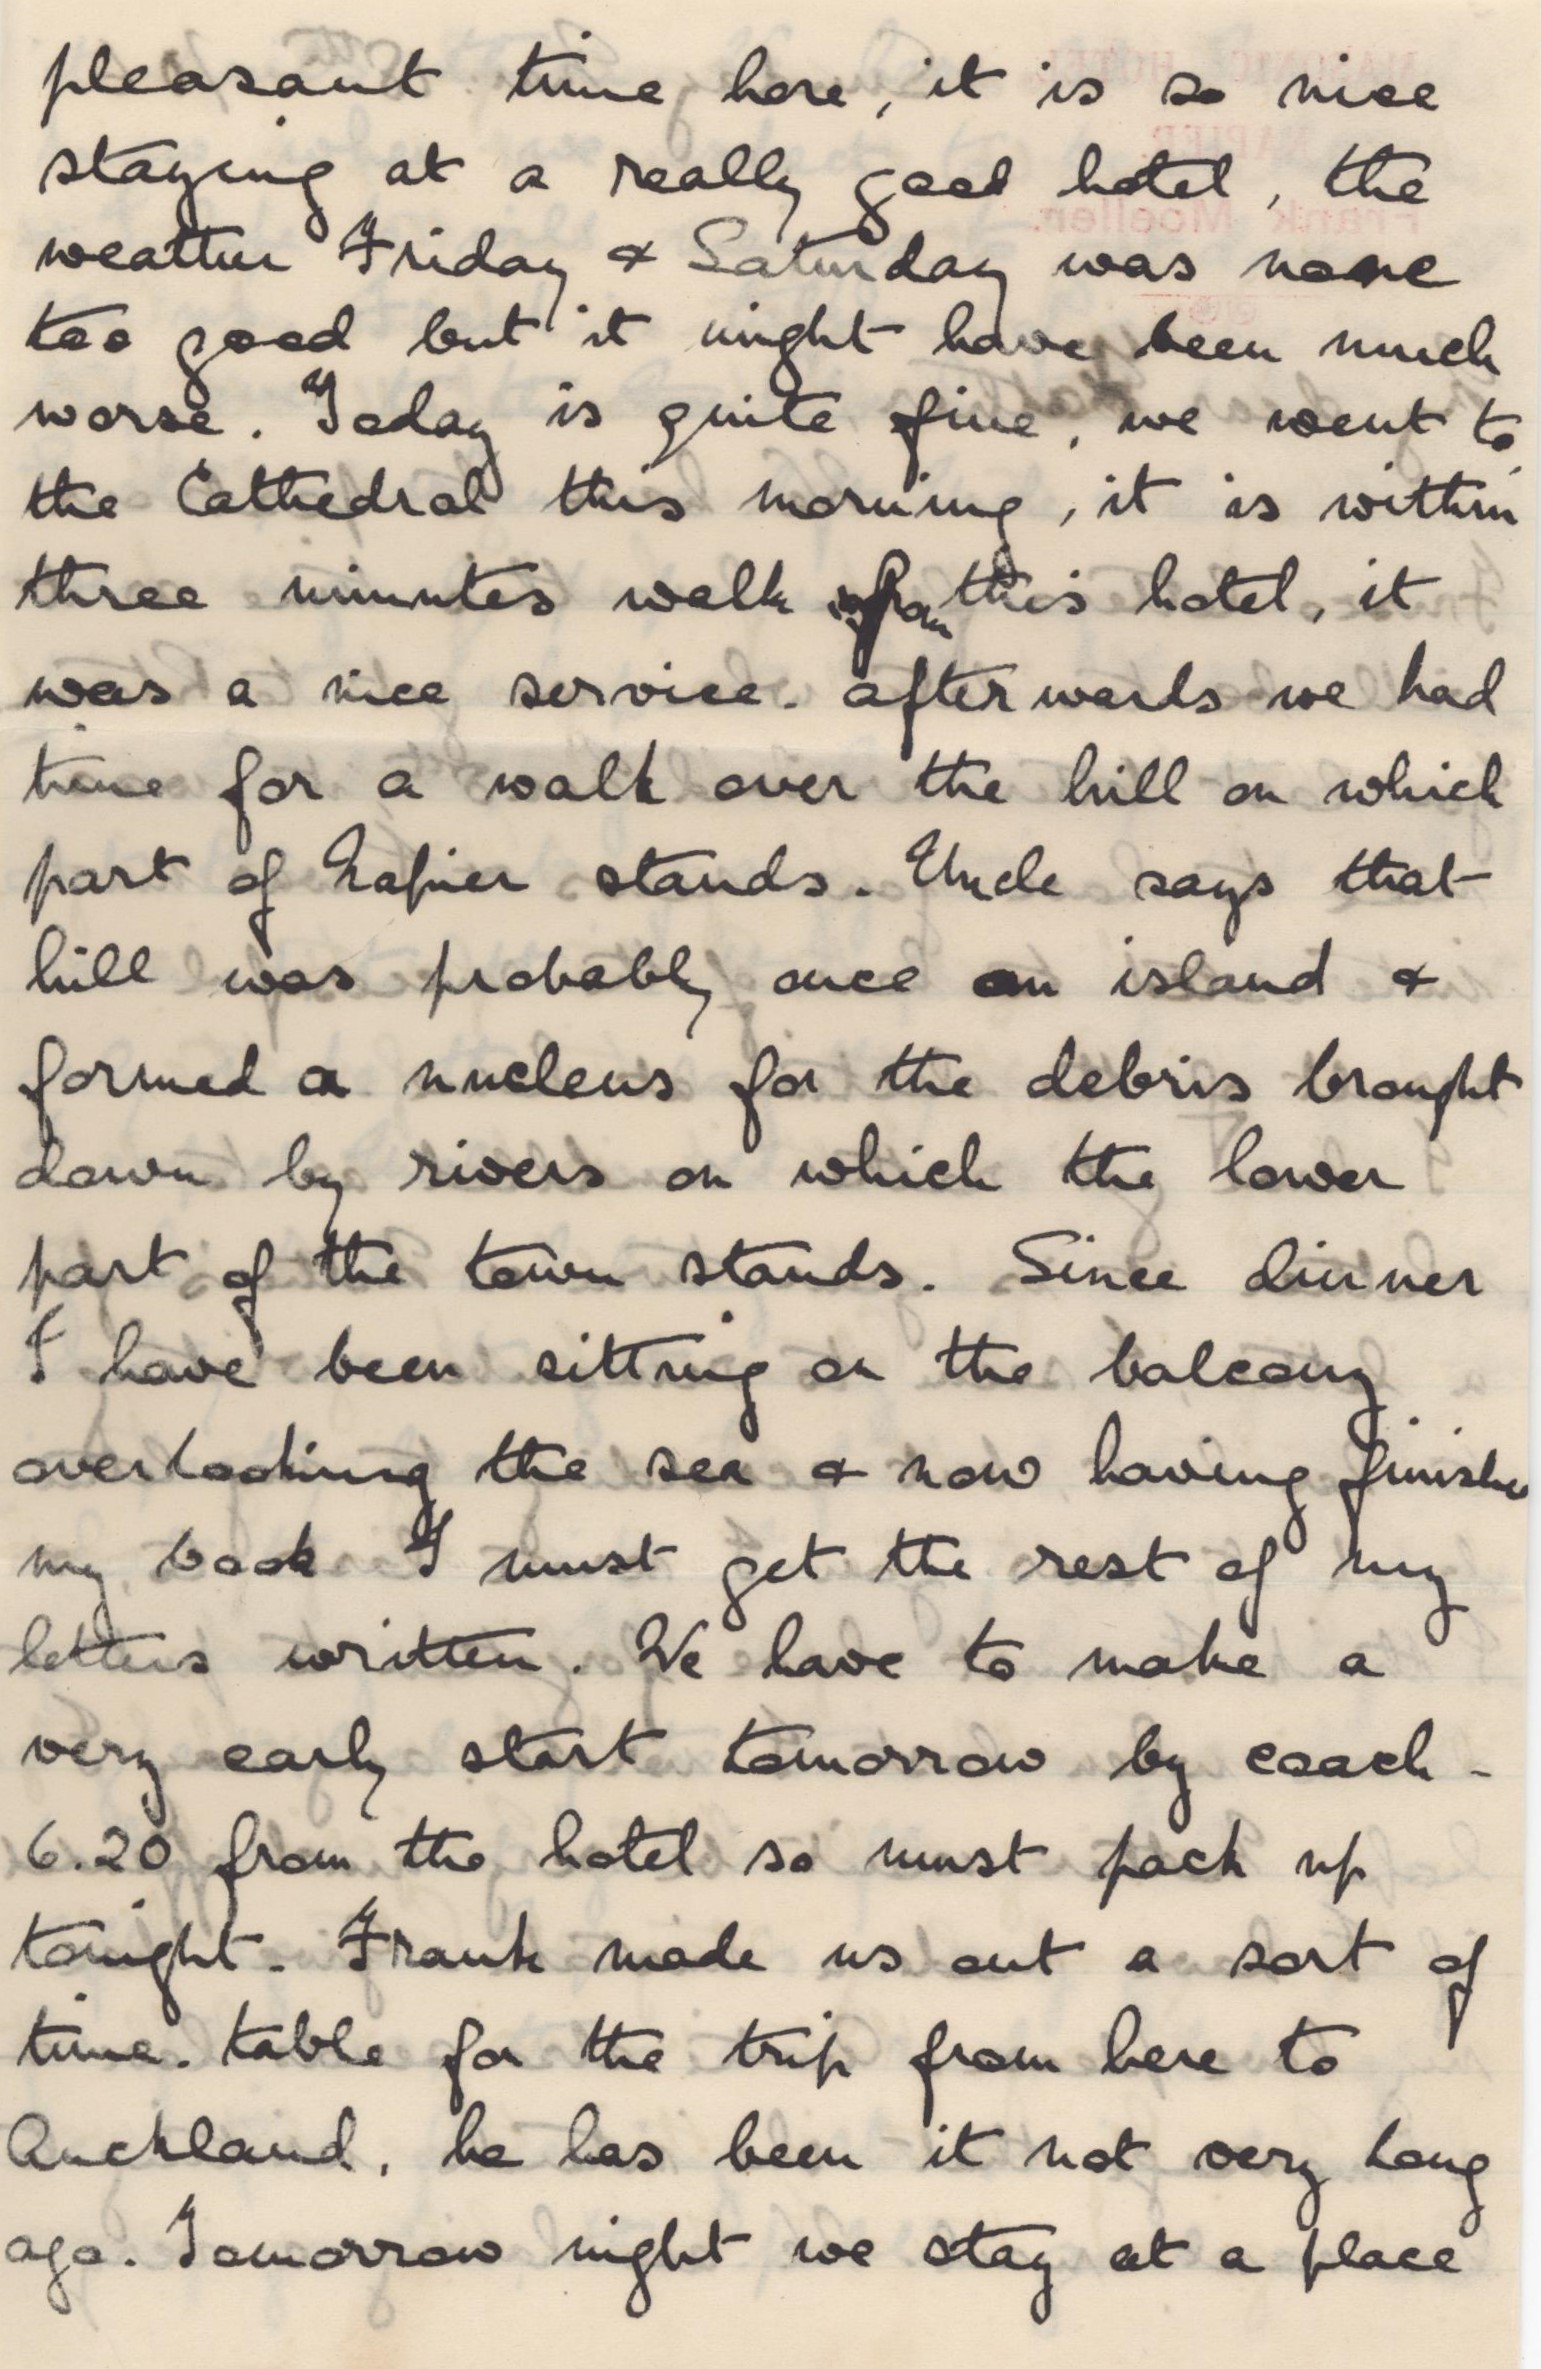 pleasant time here, it is so nice
staying at a really good hotel, the
weather Friday & Saturday was none
too good but it might have been much
worse. Today is quite fine, we went to
the Cathedral this morning, it is within
three minutes walk from this hotel, it
was a nice service. afterwards we had
time for a walk over the hill on which
part of Napier stands. Uncle says that
hill was probably once an island &
formed a nucleus for the debris brought
down by rivers on which the lower
part of the town stands. Since dinner
I have been sitting on the balcony
overlooking the sea & now having finished
my book I must get the rest of my
letters written. We have to make a
very early start tomorrow by coach -
6.20 from the hotel so must pack up
tonight. Frank made us out a sort of
time-table for the trip from here to
Auckland, he has been it not very long
ago. Tomorrow night we stay at a place